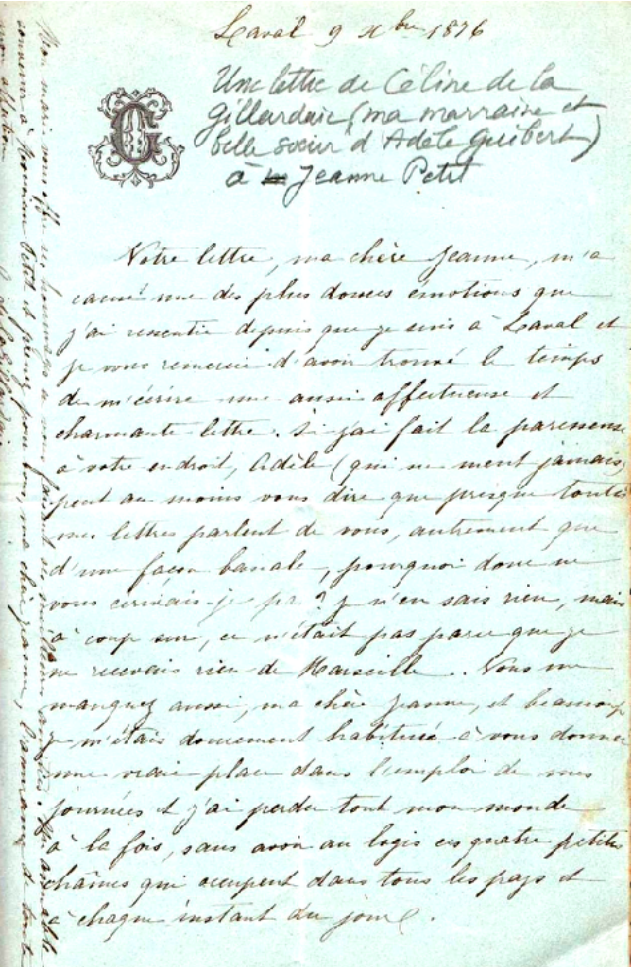 Laval 9 Xbre 1876
G
Une lettre de Céline de la
Gillardaie (ma marraine et
belle soeur d'Adèle Guibert)
à Jeanne Petit
Votre lettre, ma chère Jeanne, m'a
causé une des plus douces émotions que
j'ai ressentie depuis que je suis à Laval et
je vous remercie d'avoir trouvé le temps
de m'écrire une aussi affectueuse et
charmante lettre. Si j'ai fait la paresseuse
à votre endroit, Adèle (qui ne ment jamais)
peut au moins vous dire que presque toutes
mes lettres parlent de vous, autrement que
d'une façon banale, pourquoi donc ne
vous écrivais-je pas ? je n'en sais rien, mais
à coup sur, ce n'était pas parce que je
ne recevais rien de Marseille. Vous me
manquez aussi, ma chère Jeanne, et beaucoup
je m'étais doucement habituée à vous donner
une vraie place dans l'emploi de mes
journées et j'ai perdu tout mon monde
à la fois, sans avoir au logis ces quatre petites
chaînes qui occupent dans tous les pays et
à chaque instant du jour.
Mon mari vous offre ses hommages
Monsieur Petit et prenez pour vous, ma chère Jeanne, l'assurance de toute
mon affection